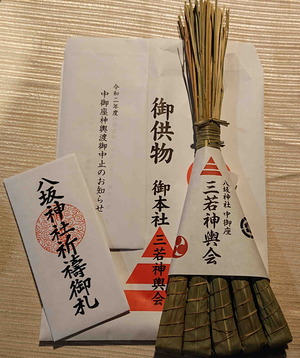 令和二年度
中御座神輿渡御中止のお知らせ
御供物
御本社
三若神輿会
八坂神社 中御座
三若神輿会
八坂神社祈祷御札